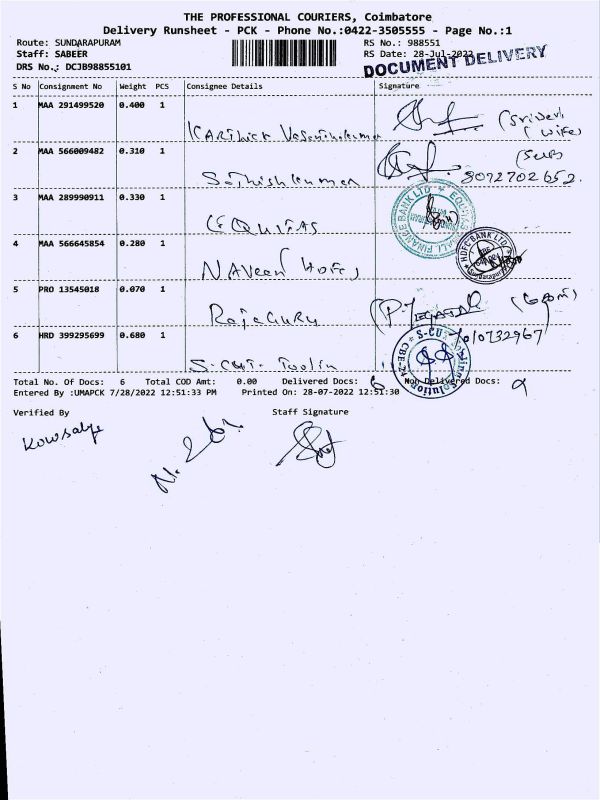 THE PROFESSIONAL COURIERS, Coimbatore
Delivery Runsheet - PCK - Phone No.:0422-3505555 - Page No.:1
Route: SUNDARAPURAM RS No.: 988551
Staff: SABEER RS Date: 28-Jul-2022
DRS No.: DCJB98855101 DOCUMENT DELIVERY
S No Consignment No Weight PCS Consignee Details Signature
1 MAA 291499520 0.400 1
Karthick Vasanthakumar (Sridevi
(wife)
2 MAA 566009482 0.310 1
Sathishkumar 8072702652
3 MAA 289990911 0.330 1
EQUITAS
4 MAA 566645854 0.280 1
NAVeen
5 PRO 13545018 0.070 1
RajaGuru
6 HRD 399295699 0.680 1
S-CUT Toolin
Total No. Of Docs: 6 Total COD Amt: 0.00 Delivered Docs: 6 Non-Delivered Docs:
Entered By :UMAPCK 7/28/2022 12:51:33 PM Printed On: 28-07-2022 12:51:30
Verified By Staff Signature
Kowsalya